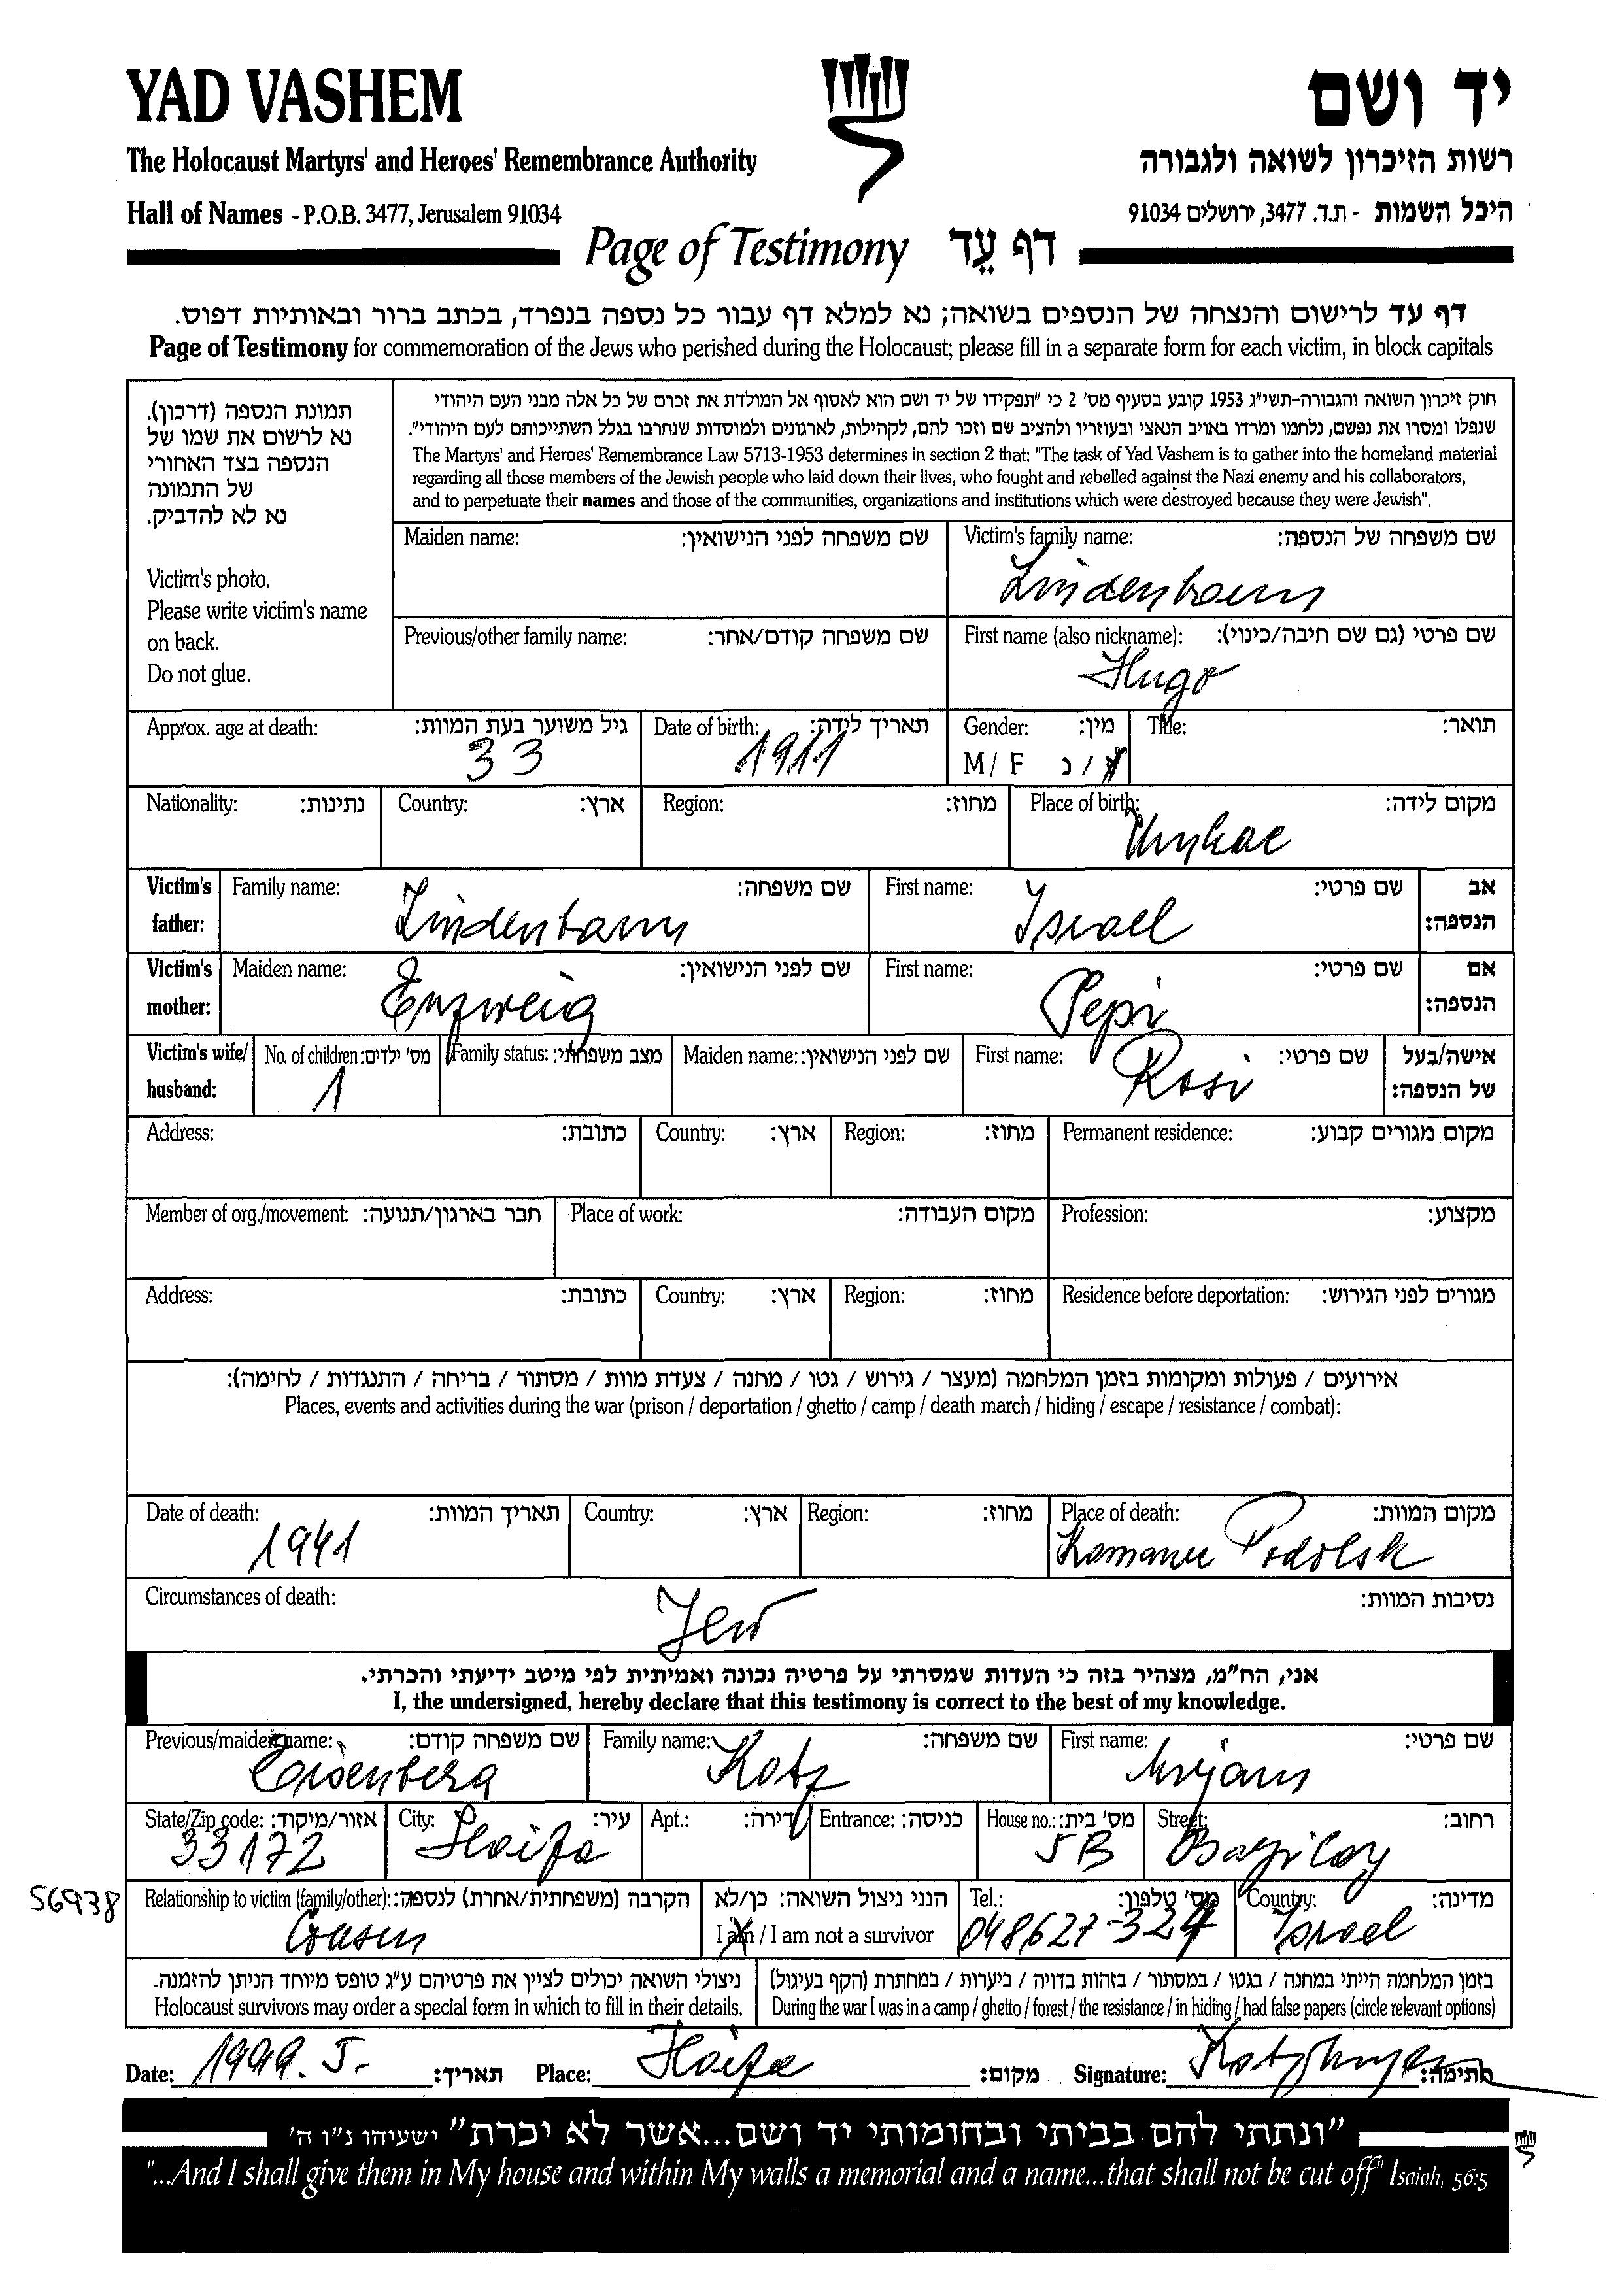 YAD VASHEM
יד ושם
The Holocaust Martyrs' and Heroes' Remembrance Authority
רשות הזיכרון לשואה ולגבורה
Hall of Names - P.O.B. 3477, Jerusalem 91034
היכל השמות - ת.ד. 3477, ירושלים 91034
Page of Testimony דף עֵד
דף עד לרישום והנצחה של הנספים בשואה; נא למלא דף עבור כל נספה בנפרד, בכתב ברור ובאותיות דפוס.
Page of Testimony for commemoration of the Jews who perished during the Holocaust; please fill in a separate form for each victim, in block capitals
תמונת הנספה (דרכון).
נא לרשום את שמו של
הנספה בצד האחורי
של התמונה
נא לא להדביק.
Victim's photo.
Please write victim's name
on back.
Do not glue.
חוק זיכרון השואה והגבורה-תשי"ג 1953 קובע בסעיף מס' 2 כי "תפקידו של יד ושם הוא לאסוף אל המולדת את זכרם של כל אלה מבני העם היהודי
שנפלו ומסרו את נפשם, נלחמו ומרדו באויב הנאצי ובעוזריו ולהציב שם וזכר להם, לקהילות, לארגונים ולמוסדות שנחרבו בגלל השתייכותם לעם היהודי".
The Martyrs' and Heroes' Remembrance Law 5713-1953 determines in section 2 that: "The task of Yad Vashem is to gather into the homeland material
regarding all those members of the Jewish people who laid down their lives, who fought and rebelled against the Nazi enemy and his collaborators,
and to perpetuate their names and those of the communities, organizations and institutions which were destroyed because they were Jewish".
Maiden name: שם משפחה לפני הנישואין:
Victim's family name: שם משפחה של הנספה:
Lindenbaum
Previous/other family name: שם משפחה קודם/אחר:
First name (also nickname): שם פרטי (גם שם חיבה/כינוי):
Hugo
Approx. age at death: גיל משוער בעת המוות:
33
Date of birth: תאריך לידה:
1911
Gender: מין:
M / F ז / נ
Title: תואר:
Nationality: נתינות:
Country: ארץ:
Region: מחוז:
Place of birth: מקום לידה:
Victim's father: Family name: שם משפחה:
Lindenbaum
First name: שם פרטי:
Israel
אב הנספה:
Victim's mother: Maiden name: שם לפני הנישואין:
Enzweig
First name: שם פרטי:
Pepi
אם הנספה:
Victim's wife/ husband: No. of children: מס' ילדים:
1
Family status: מצב משפחתי:
Maiden name: שם לפני הנישואין:
First name: שם פרטי:
Rosi
אישה/בעל של הנספה:
Address: כתובת:
Country: ארץ:
Region: מחוז:
Permanent residence: מקום מגורים קבוע:
Member of org./movement: חבר בארגון/תנועה:
Place of work: מקום העבודה:
Profession: מקצוע:
Address: כתובת:
Country: ארץ:
Region: מחוז:
Residence before deportation: מגורים לפני הגירוש:
אירועים / פעולות ומקומות בזמן המלחמה (מעצר / גירוש / גטו / מחנה / צעדת מוות / מסתור / בריחה / התנגדות / לחימה):
Places, events and activities during the war (prison / deportation / ghetto / camp / death march / hiding / escape / resistance / combat):
Date of death: תאריך המוות:
1941
Country: ארץ:
Region: מחוז:
Place of death: מקום המוות:
Kamanec Podolsk
Circumstances of death: נסיבות המוות:
Jew
אני, הח"מ, מצהיר בזה כי העדות שמסרתי על פרטיה נכונה ואמיתית לפי מיטב ידיעתי והכרתי.
I, the undersigned, hereby declare that this testimony is correct to the best of my knowledge.
Previous/maiden name: שם משפחה קודם:
Eisenberg
Family name: שם משפחה:
Katz
First name: שם פרטי:
Mirjam
State/Zip code: אזור/מיקוד:
33172
City: עיר:
Haifa
Apt.: דירה:
Entrance: כניסה:
House no.: מס' בית:
5B
Street: רחוב:
56938
Relationship to victim (family/other): הקרבה (משפחתית/אחרת) לנספה:
Cousin
הנני ניצול השואה: כן/לא
I am / I am not a survivor
Tel.: מס' טלפון:
048627-324
Country: מדינה:
Israel
ניצולי השואה יכולים לציין את פרטיהם ע"ג טופס מיוחד הניתן להזמנה.
Holocaust survivors may order a special form in which to fill in their details.
בזמן המלחמה הייתי במחנה / בגטו / במסתור / בזהות בדויה / ביערות / במחתרת (הקף בעיגול)
During the war I was in a camp / ghetto / forest / the resistance / in hiding / had false papers (circle relevant options)
Date: 1999. 5. תאריך: Place: Haifa מקום: Signature: חתימה:
"ונתתי להם בביתי ובחומותי יד ושם...אשר לא יכרת" ישעיהו נ"ו ה'
"...And I shall give them in My house and within My walls a memorial and a name...that shall not be cut off" Isaiah, 56:5